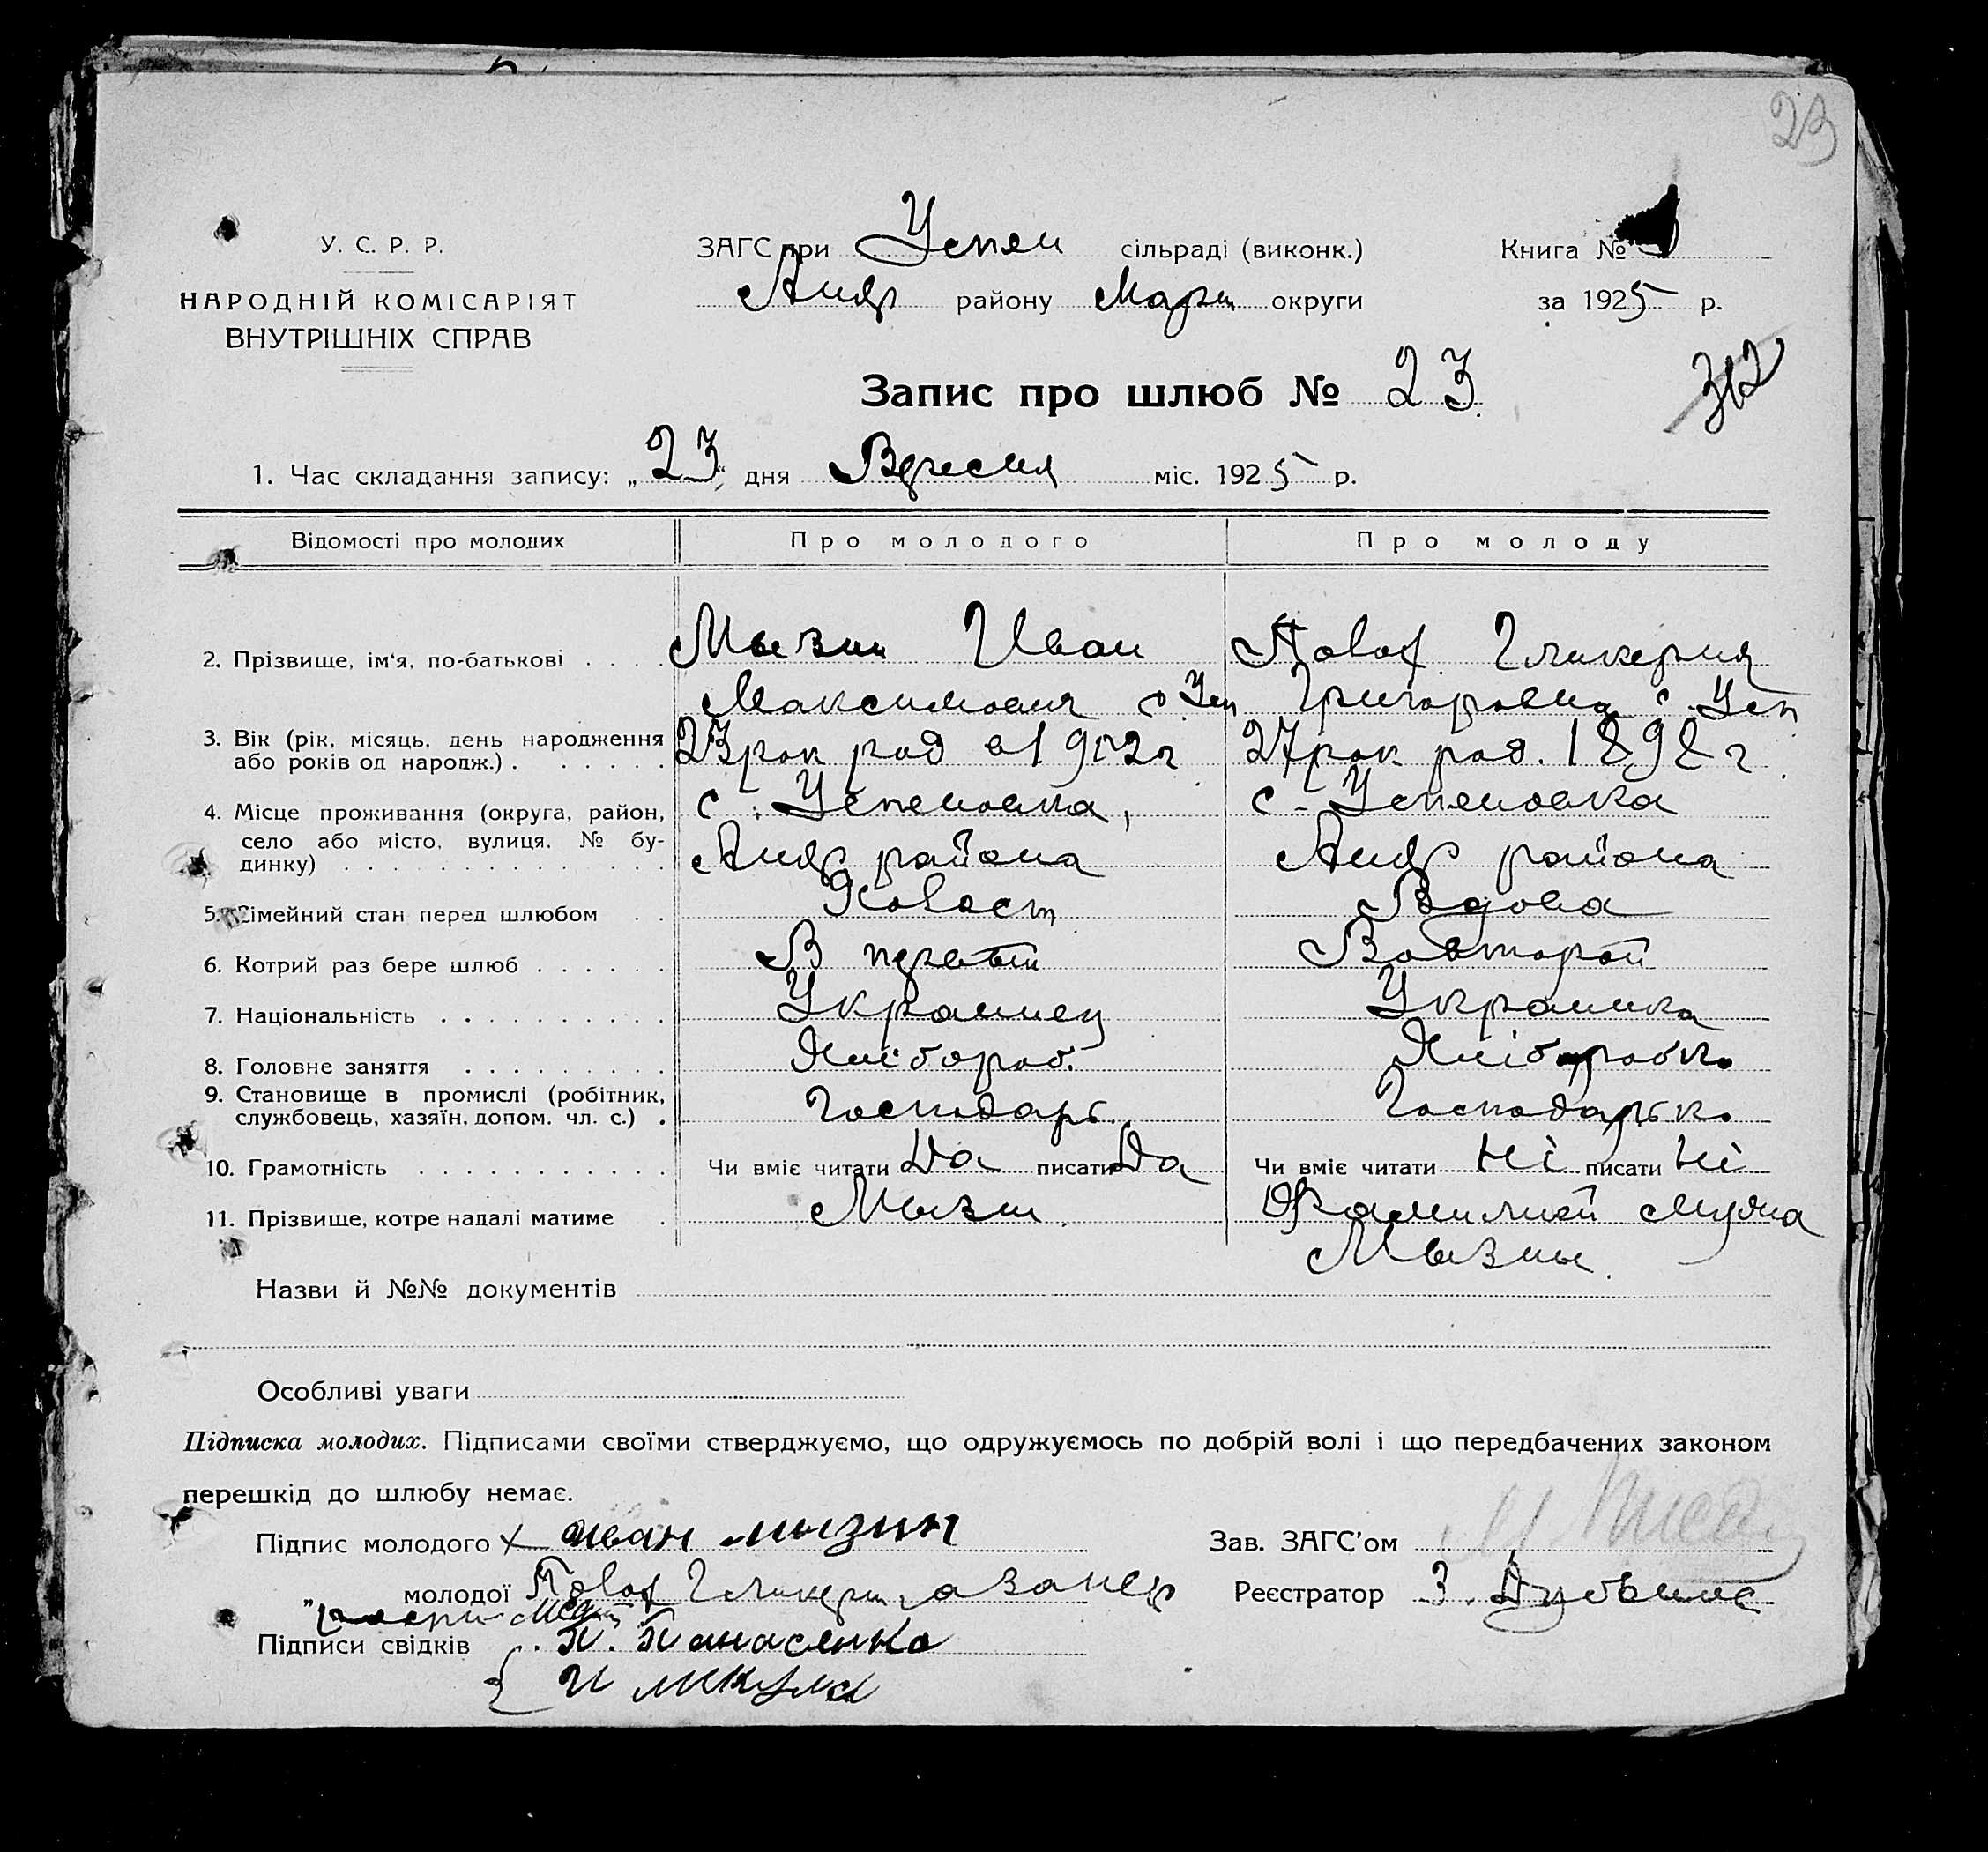 23
У. С. Р. Р.
НАРОДНІЙ КОМІСАРІЯТ
ВНУТРІШНІХ СПРАВ
ЗАГС при Успен сільраді (виконк.)
Андр району Мари округи
Книга №
за 1925 р.
312
Запис про шлюб № 23
1. Час складання запису: „23“ дня Вересня міс. 1925 р.
Відомості про молодих Про молодого Про молоду
2. Прізвище, ім‘я, по-батькові . . . . Мызин Иван Гликерия
Максимович с Усп Григоровна с. Усп
3. Вік (рік, місяць, день народження 23 рок род в 1902 г 27 рок род. 1898 г
або років од народж.) . . . . . .
4. Місце проживання (округа, район, с. Успеновка, с. Успеновка
село або місто, вулиця, № бу-
динку) . . . . . . . . . . . . . . Андр района Андр района
5. Сімейний стан перед шлюбом . . Холост Вдова
6. Котрий раз бере шлюб . . . . . . В первый Во второй
7. Національність . . . . . . . . . . Украинец Украинка
8. Головне заняття . . . . . . . . . Хлібороб. Хлібо
9. Становище в промислі (робітник,
службовець, хазяїн, допом. чл. с.) . Господарь Господарька
10. Грамотність . . . . . . . . . . . Чи вміє читати Да писати Да Чи вміє читати Ні писати Ні
11. Прізвище, котре надалі матиме . Мызин. Фамилией мужа
Мызин.
Назви й №№ документів
Особливі уваги
Підписка молодих. Підписами своїми стверджуємо, що одружуємось по добрій волі і що передбачених законом
перешкід до шлюбу немає.
Підпис молодого х иван мызин Зав. ЗАГС'ом
„ молодої Гликери а за нею Реєстратор З.
Підписи свідків П. Панасенко
И микула